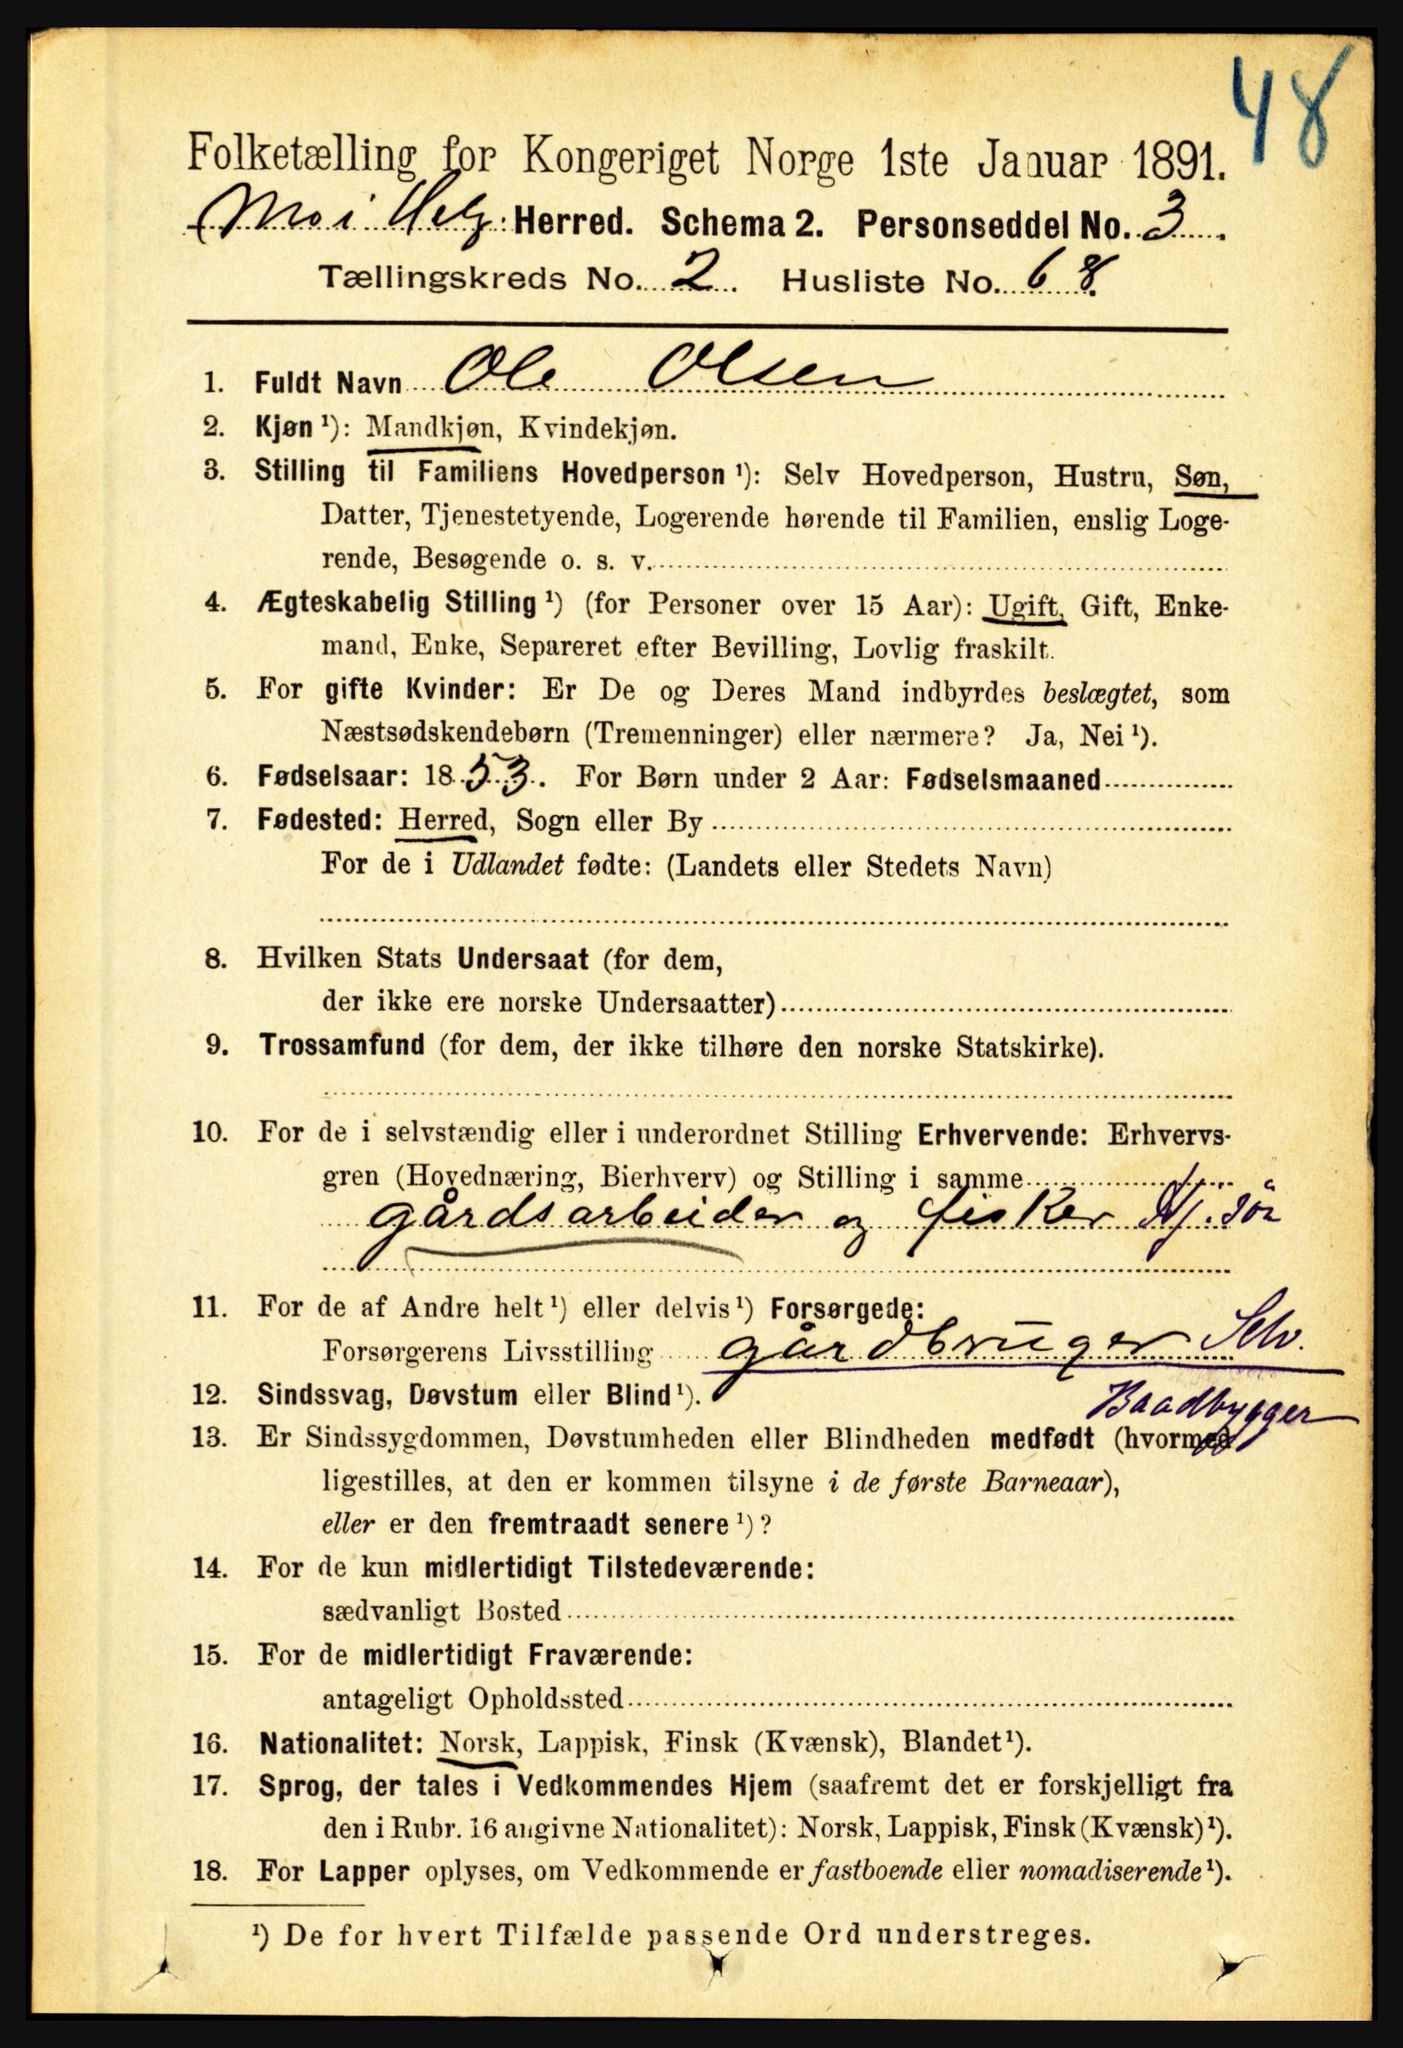 48
Folketælling for Kongeriget Norge 1ste Januar 1891.
Mo i Helg: Herred. Schema 2. Personseddel No. 3.
Tællingskreds No. 2. Husliste No. 68.
1. Fuldt Navn Ole Olsen
2. Kjøn ¹): Mandkjøn, Kvindekjøn.
3. Stilling til Familiens Hovedperson ¹): Selv Hovedperson, Hustru, Søn,
Datter, Tjenestetyende, Logerende hørende til Familien, enslig Loge-
rende, Besøgende o. s. v.
4. Ægteskabelig Stilling ¹) (for Personer over 15 Aar): Ugift, Gift, Enke-
mand, Enke, Separeret efter Bevilling, Lovlig fraskilt.
5. For gifte Kvinder: Er De og Deres Mand indbyrdes beslægtet, som
Næstsødskendebørn (Tremenninger) eller nærmere? Ja, Nei ¹).
6. Fødselsaar: 1853. For Børn under 2 Aar: Fødselsmaaned
7. Fødested: Herred, Sogn eller By
For de i Udlandet fødte: (Landets eller Stedets Navn)
8. Hvilken Stats Undersaat (for dem,
der ikke ere norske Undersaatter)
9. Trossamfund (for dem, der ikke tilhøre den norske Statskirke).
10. For de i selvstændig eller i underordnet Stilling Erhvervende: Erhvervs-
gren (Hovednæring, Bierhverv) og Stilling i samme
gårdsarbeider og fisker
11. For de af Andre helt ¹) eller delvis ¹) Forsørgede:
Forsørgerens Livsstilling gårdbruger Selv.
Baadbygger
12. Sindssvag, Døvstum eller Blind ¹).
13. Er Sindssygdommen, Døvstumheden eller Blindheden medfødt (hvormed
ligestilles, at den er kommen tilsyne i de første Barneaar),
eller er den fremtraadt senere ¹)?
14. For de kun midlertidigt Tilstedeværende:
sædvanligt Bosted
15. For de midlertidigt Fraværende:
antageligt Opholdssted
16. Nationalitet: Norsk, Lappisk, Finsk (Kvænsk), Blandet ¹).
17. Sprog, der tales i Vedkommendes Hjem (saafremt det er forskjelligt fra
den i Rubr. 16 angivne Nationalitet): Norsk, Lappisk, Finsk (Kvænsk) ¹).
18. For Lapper oplyses, om Vedkommende er fastboende eller nomadiserende ¹).
¹) De for hvert Tilfælde passende Ord understreges.